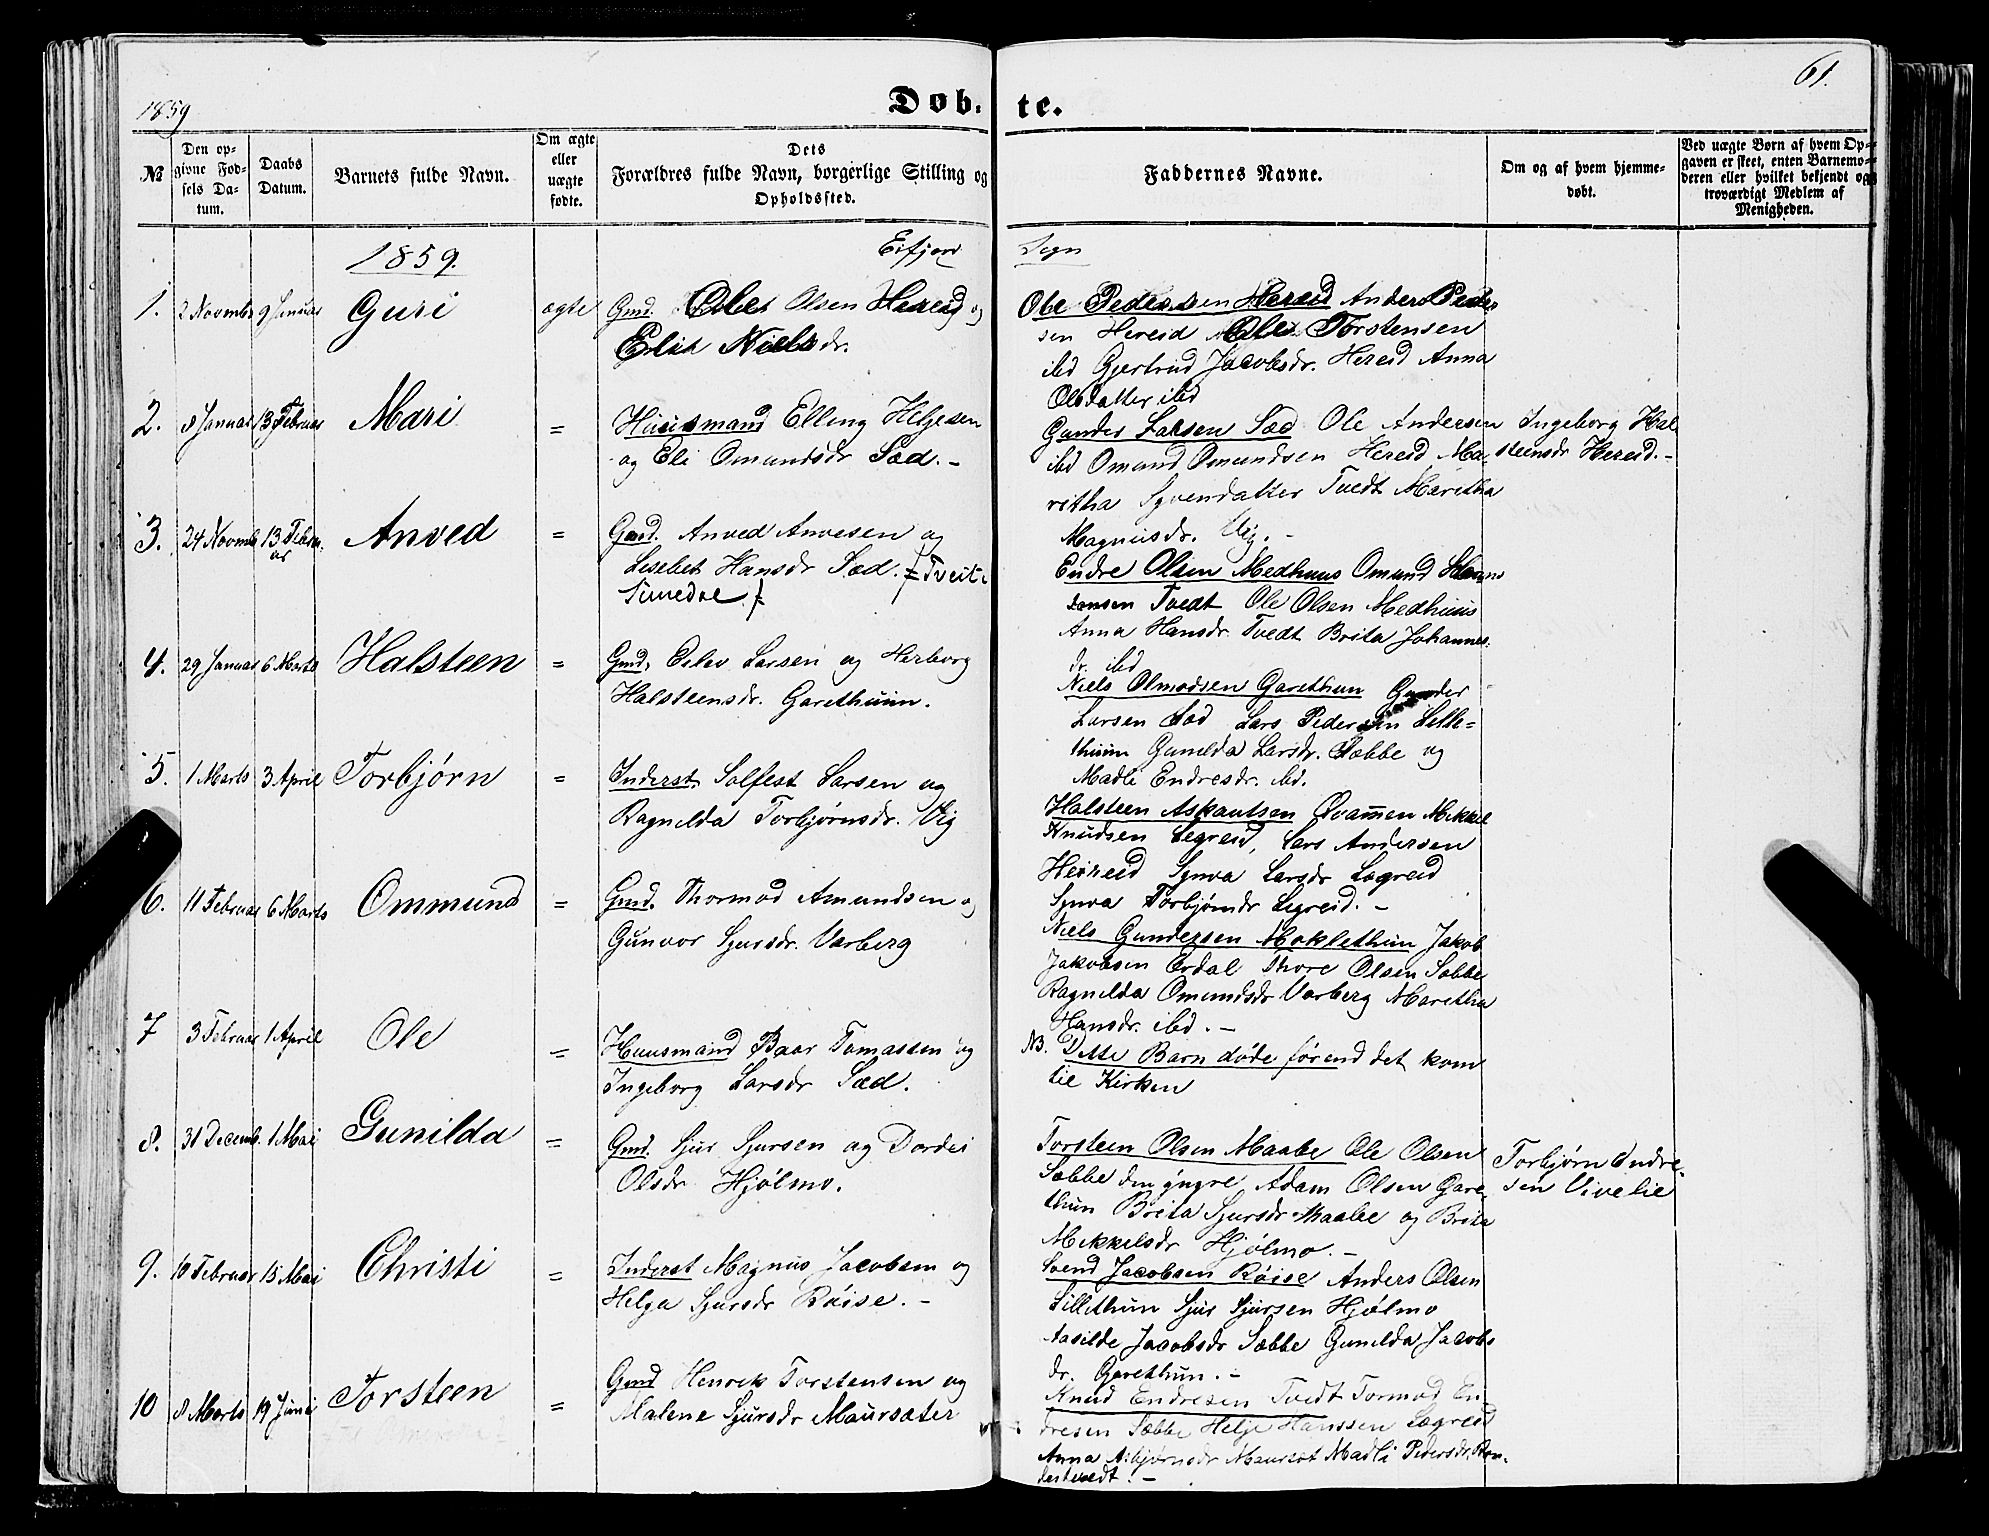 1859
61.
Døb-
te.
№
Den op-
givne Fød-
sels Da-
tum.
Daabs
Datum.
Barnets fulde Navn.
Om ægte
eller
uægte
fødte.
Dets
Forældres fulde Navn, borgerlige Stilling og
Opholdssted.
Faddernes Navne.
Om og af hvem hjemme-
døbt.
Ved uægte Børn af hvem Op-
gaven er skeet, enten Barnemo-
deren eller hvilket bekjendt og
troværdigt Medlem af
Menigheden.
1859.
Eifjord
Sogn
1. 2 Novmbr 9 Januar Guri ægte Gmd. Olsen Hereid og
Niels dr.
Ole Pedersen Hereid Anders Peder
sen Hereid Ole Torstensen
ibd Gjertrud Jacobsdr. Hereid Anna
Olsdatter ibd
2. 8 Januar 13 Februar Mari = Huusmand Elling Heljesen
og Eli Omundsdr Sæd. -
Gunder Larsen Sæd Ole Andersen
ibd Omund Omundsen Hereid Ma-
ritha Syvendatter Tvedt Maritha
Magnusdr. Vig. -
Ingeborg Hal
steensdr Hereid. -
3. 24 Novmb 13 Febru.
ar
Anved = Gmd. Anved Anvesen og
Lisebet Hansdr Sæd. Tveit i
Simedal
Endre Olsen Medhuus Omund
Tvedt Ole Olsen Medhuus
Anna Hansdr. Tvedt Brita Johannes
dr. ibd
4. 29 Januar 6 Marts Halsteen = Gmd. Larsen og Herborg
Halsteensdr. Garethuun.
Niels Olmodsen Garethun Gunder
Larsen Sæd Lars Pedersen Lille-
thuun Gunilda Larsdr. Sæbbe og
Madli Endresdr. ibd.
5. 1 Marts 3 April Torbjørn = Inderst. Solfest Larsen og
Ragnilda Torbjørnsdr. Vig
Halsteen Askautsen Qvammen Mekkel
Knudsen Legreid, Lars Andersen
Hereid Synva Larsdr Legreid
Synva Torbjørnsdr Legreid. -
6. 11 Februar 6 Marts Ommund = Gmd. Thormod Amundsen og
Gunvor Sjursdr. Varberg
Niels Gundersen Moklethun Jakob
Jakobsen Erdal Thore Olsen Sæbbe
Ragnilda Omundsdr Varberg Maretha
Hansdr. ibd. -
7 3 Februar 1 April Ole = Huusmand Baar Tomassen og
Ingeborg Larsdr Sæd.
NB. Dette Barn døde førend det kom
til Kirken
8. 31 Decemb. 1 Mai Gunilda = Gmd. Sjur Sjursen og Dordei
Olsdr Hjølmo.
Torsteen Olsen Maabe Ole Olsen
Sæbbe den yngre, Adam Olsen Gare
thun Brita Sjursdr Maabe og Brita
Mekkelsdr Hjølmo. -
Torbjørn Endre-
sen Vivelie
9. 10 Februar 15 Mai Christi = Inderst Magnus Jacobsen og
Helga Sjursdr Røise. -
Svend Jacobsen Røise Anders Olsen
Lillethun Sjur Sjursen Hjølmo
Aasilde Jacobsdr Sæbbe Gunilda Jacobs
dr. Garethun. -
10 8 Marts 19 Juni Torsteen = Gmd Henrek Torstensen og
Malene Sjursdr Maursæter
Knud Endresen Tvedt Tormod En
dresen Sæbbe Helje Hanssen Legreid
Anna Asbjørnsdr Maurset Madli Pedersdr.